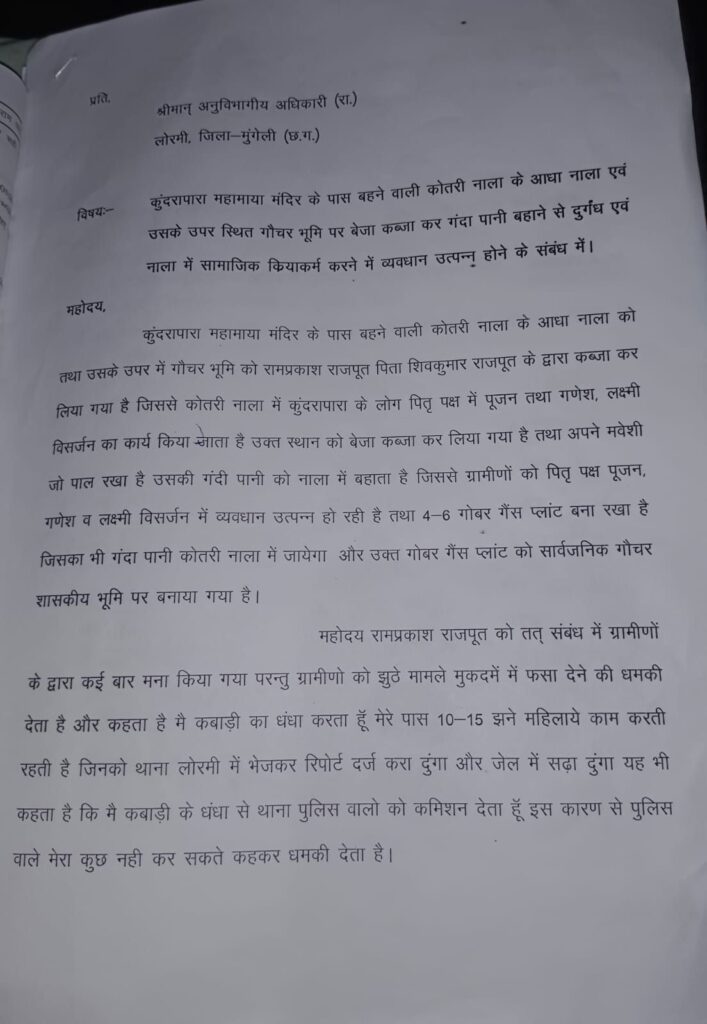 प्रति,
श्रीमान् अनुविभागीय अधिकारी (रा.)
लोरमी, जिला–मुंगेली (छ.ग.)
विषयः– कुंदरापारा महामाया मंदिर के पास बहने वाली कोतरी नाला के आधा नाला एवं
उसके उपर स्थित गौचर भूमि पर बेजा कब्जा कर गंदा पानी बहाने से दुर्गंध एवं
नाला में सामाजिक कियाकर्म करने में व्यवधान उत्पन्न् होने के संबंध में।
महोदय,
कुंदरापारा महामाया मंदिर के पास बहने वाली कोतरी नाला के आधा नाला को
तथा उसके उपर में गौचर भूमि को रामप्रकाश राजपूत पिता शिवकुमार राजपूत के द्वारा कब्जा कर
लिया गया है जिससे कोतरी नाला में कुंदरापारा के लोग पितृ पक्ष में पूजन तथा गणेश, लक्ष्मी
विसर्जन का कार्य किया जाता है उक्त स्थान को बेजा कब्जा कर लिया गया है तथा अपने मवेशी
जो पाल रखा है उसकी गंदी पानी को नाला में बहाता है जिससे ग्रामीणों को पितृ पक्ष पूजन,
गणेश व लक्ष्मी विसर्जन में व्यवधान उत्पन्न हो रही है तथा 4–6 गोबर गैंस प्लांट बना रखा है
जिसका भी गंदा पानी कोतरी नाला में जायेगा और उक्त गोबर गैंस प्लांट को सार्वजनिक गौचर
शासकीय भूमि पर बनाया गया है।
महोदय रामप्रकाश राजपूत को तत् संबंध में ग्रामीणों
के द्वारा कई बार मना किया गया परन्तु ग्रामीणो को झुठे मामले मुकदमें में फसा देने की धमकी
देता है और कहता है मै कबाड़ी का धंधा करता हूॅ मेरे पास 10–15 झने महिलाये काम करती
रहती है जिनको थाना लोरमी में भेजकर रिपोर्ट दर्ज करा दुंगा और जेल में सढ़ा दुंगा यह भी
कहता है कि मै कबाड़ी के धंधा से थाना पुलिस वालो को कमिशन देता हूॅ इस कारण से पुलिस
वाले मेरा कुछ नही कर सकते कहकर धमकी देता है।